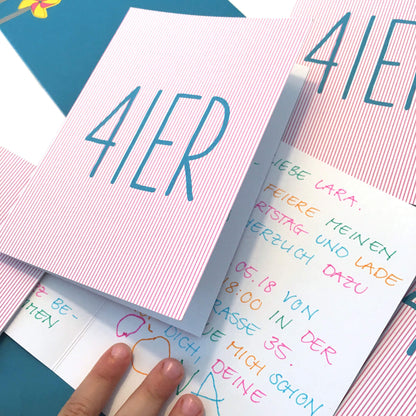 41ER
41ER
LIEBE LARA.
FEIERE MEINEN
RTSTAG UND LADE
HERZLICH DAZU
.05.18 VON
18:00 IN DER
RASSE 35.
E MICH SCHON
DICH, DEINE
BE-
TEN